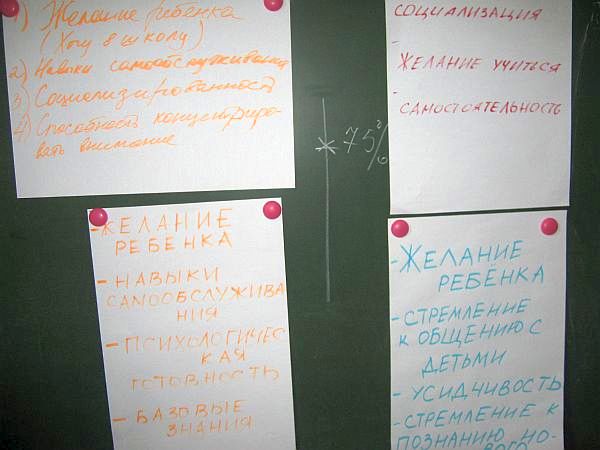 1) Желание ребенка
(Хочу в школу)
2) Навыки самообслуживания
3) Социализированность
4) Способность концентриро-
вать внимание
СОЦИАЛИЗАЦИЯ
-
ЖЕЛАНИЕ УЧИТЬСЯ
-
САМОСТОЯТЕЛЬНОСТЬ
75%
- ЖЕЛАНИЕ
РЕБЕНКА
- НАВЫКИ
САМООБСЛУЖИВА
НИЯ
- ПСИХОЛОГИЧЕС
КАЯ
ГОТОВНОСТЬ
- БАЗОВЫЕ
ЗНАНИЯ
- ЖЕЛАНИЕ
РЕБЁНКА
- СТРЕМЛЕНИЕ
К ОБЩЕНИЮ С
ДЕТЬМИ
- УСИДЧИВОСТЬ
- СТРЕМЛЕНИЕ К
ПОЗНАНИЮ НО-
ВОГО